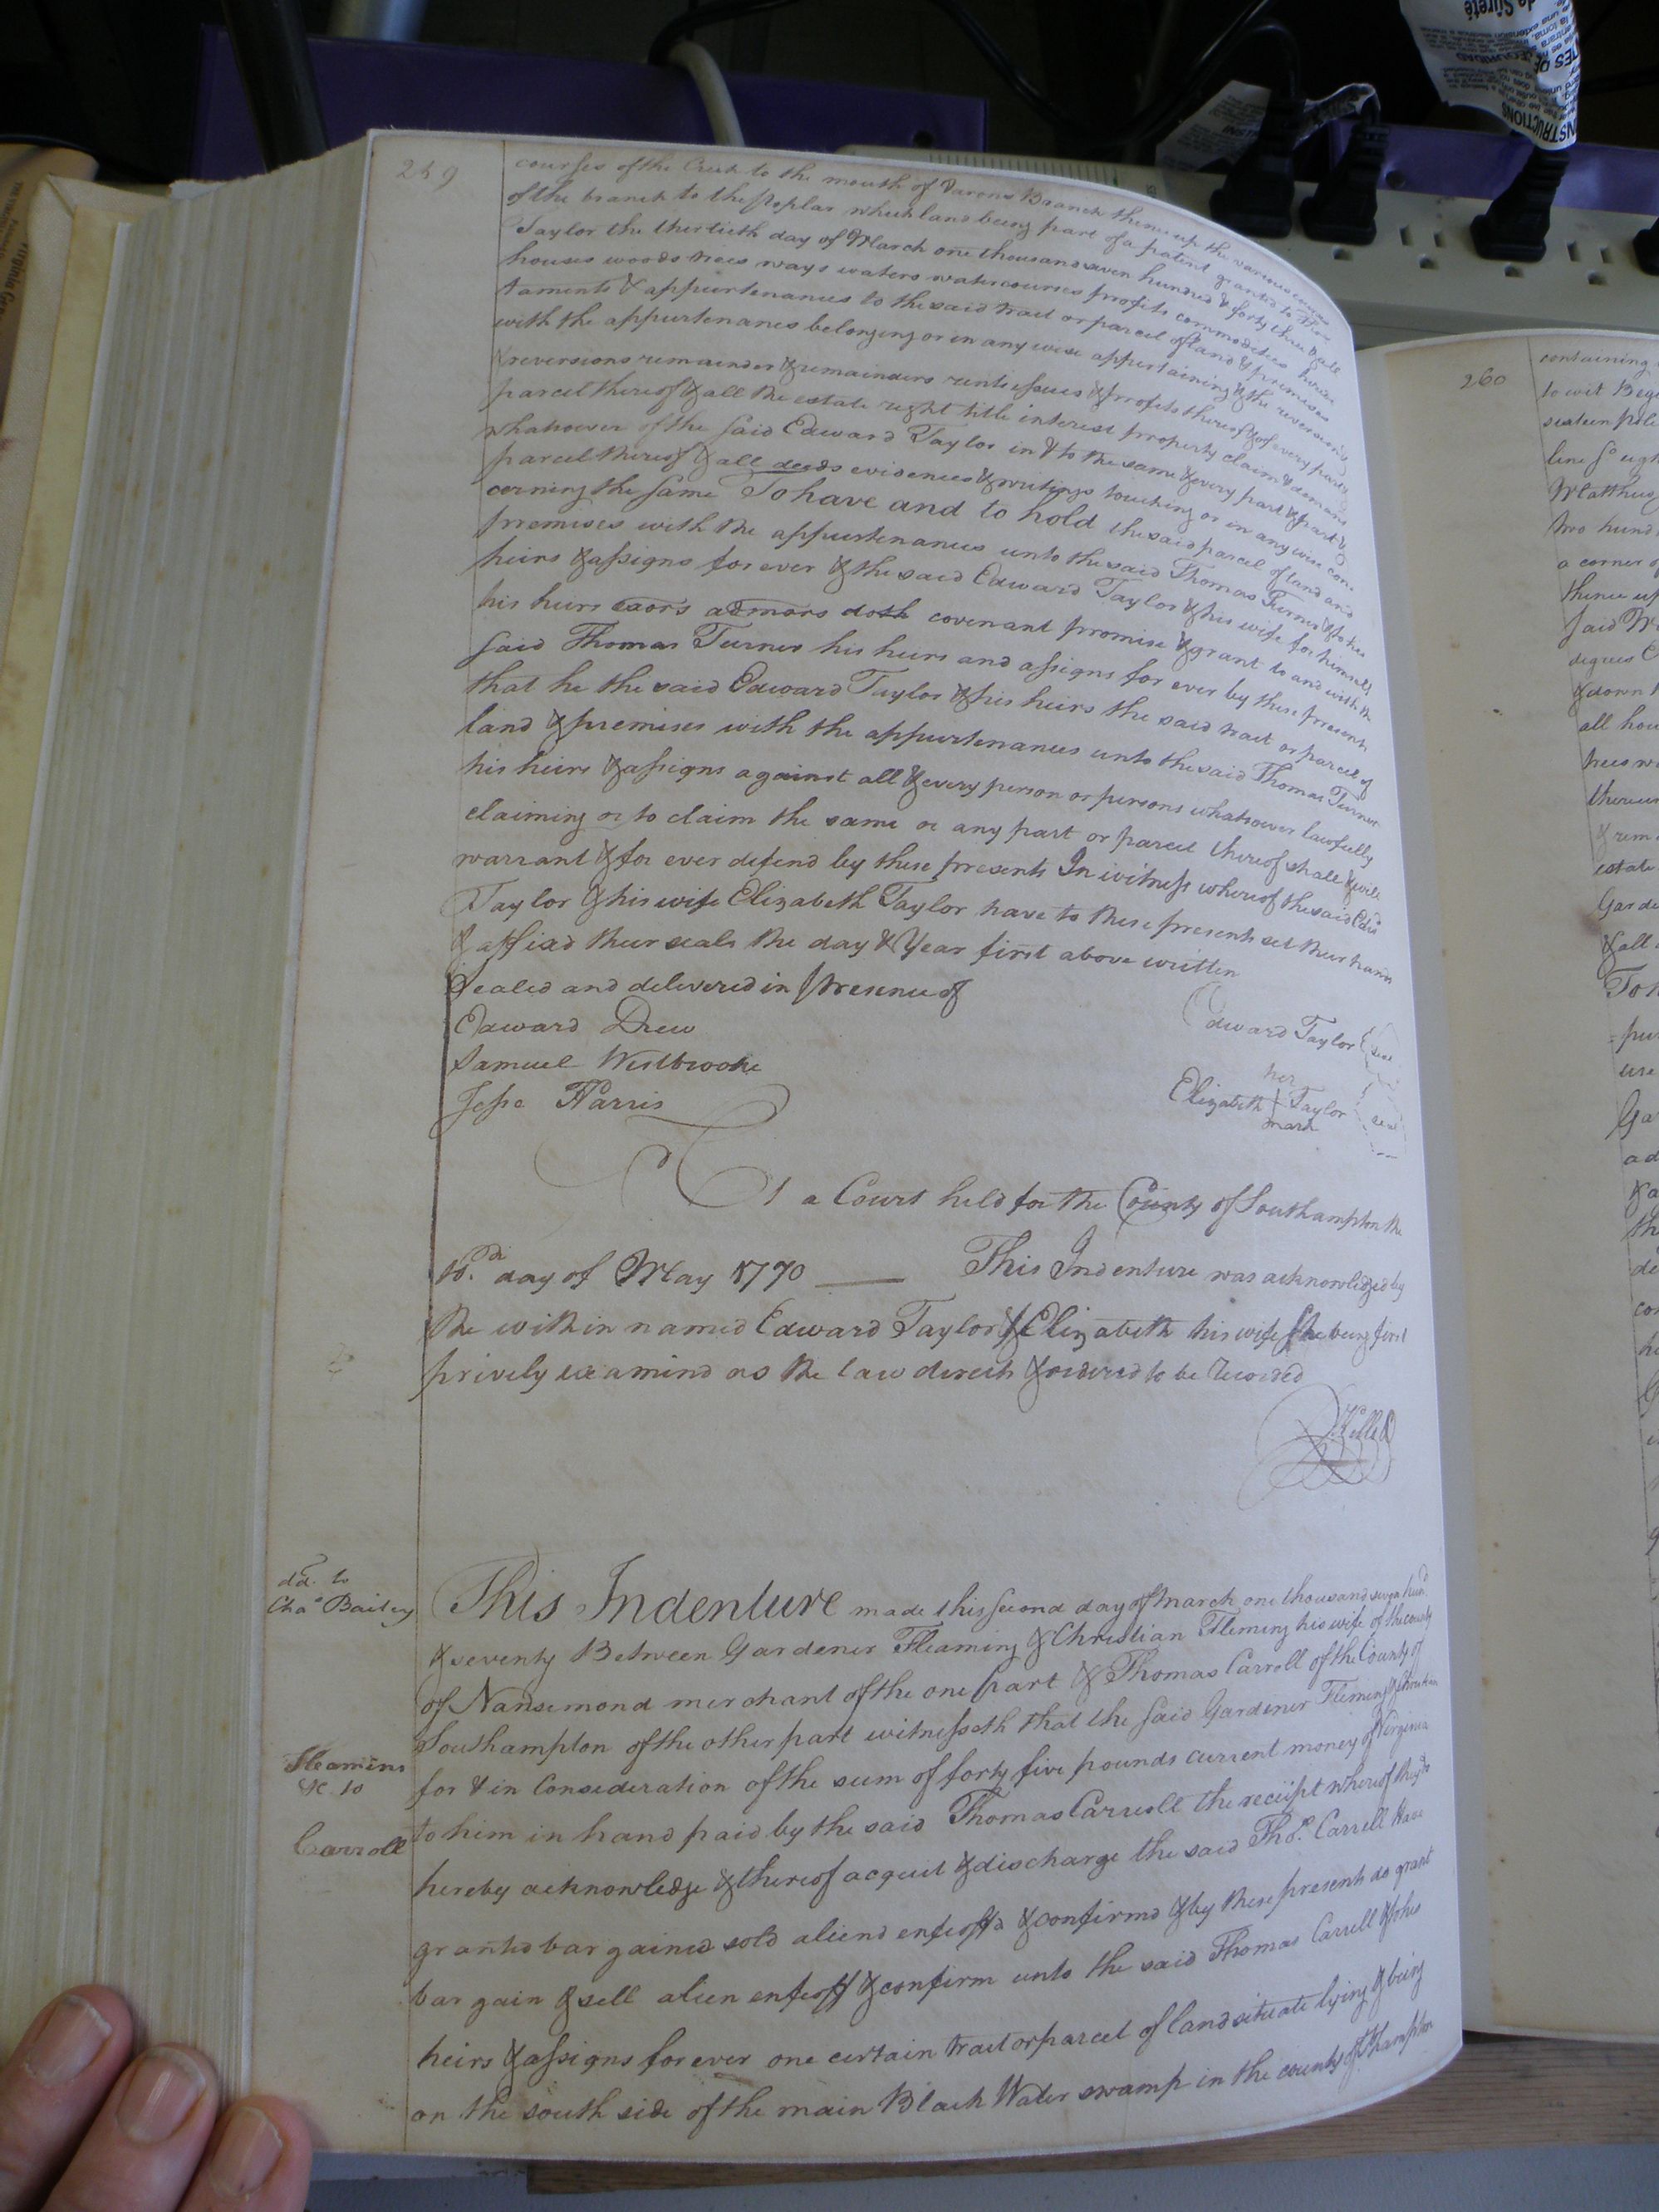 259
courses of the Creek to the mouth of Branch thence up the various courses
of the branch to the poplar which land being part of a patent granted to
Taylor the thirtieth day of March one thousand seven hundred & forty three & all
houses woods trees ways waters watercourses profits commodities
taments & appurtenances to the said tract or parcel of land & premises
with the appurtenances belonging or in any wise appertaining & the reversion
& reversions remainder & remainders rents issues & profits thereof & of every part &
parcel thereof & all the estate right title interest property claim & demand
whatsoever of the said Edward Taylor in & to the same & every part & part &
parcel thereof & all deeds evidences & writings touching or in any wise con
cerning the same To have and to hold the said parcel of land and
premises with the appurtenances unto the said Thomas Turner & to his
heirs & assigns for ever & the said Edward Taylor & his wife for himself
his heirs exors admors doth covenant promise & grant to and with the
said Thomas Turner his heirs and assigns for ever by these presents
that he the said Edward Taylor & his heirs the said tract or parcel of
land & premises with the appurtenances unto the said Thomas Turner
his heirs & assigns against all & every person or persons whatsoever lawfully
claiming or to claim the same or any part or parcel thereof shall & will
warrant & for ever defend by these presents In witness whereof the said Edwd
Taylor & his wife Elizabeth Taylor have to these presents set their hands
& affixd their seals the day & Year first above written
Sealed and delivered in presence of
Edward Drew
Edward Taylor seal
Samuel Westbrooke
her
Jesse Harris
Elizabeth Taylor seal
mark
At a Court held for the County of Southampton the
10.th day of May 1770 This Indenture was acknowledged by
the within named Edward Taylor & Elizabeth his wife she being first
privily examind as the law directs & ordered to be recorded
dd. to
Chas Bailey
This Indenture made this second day of March one thousand seven hund
& seventy Between Gardener Fleaming & Christian Fleming his wife of the county
of Nansemond merchant of the one part & Thomas Carroll of the County of
Southampton of the other part witnesseth that the said Gardener Fleming & Christian
Fleaming
&c. to
Carroll
for & in Consideration of the sum of forty five pounds current money of Virginia
to him in hand paid by the said Thomas Carroll the receipt whereof they do
hereby acknowledge & thereof acquit & discharge the said Thos. Carrell Have
granted bargained sold aliend enfeoffd & confirmd & by these presents do grant
bargain & sell alien enfeoff & confirm unto the said Thomas Carrell & to his
heirs & assigns for ever one certain tract or parcel of land situate lying & being
on the south side of the main Black Water swamp in the county of Sthampton
260
containing
to wit
sixteen pole
line So
Matthews
two hund
a corner of
thence up
said
degrees
& down
all hou
trees
thereun
& rem
estate
Garde
& all
To
pur
use
Ga
ad